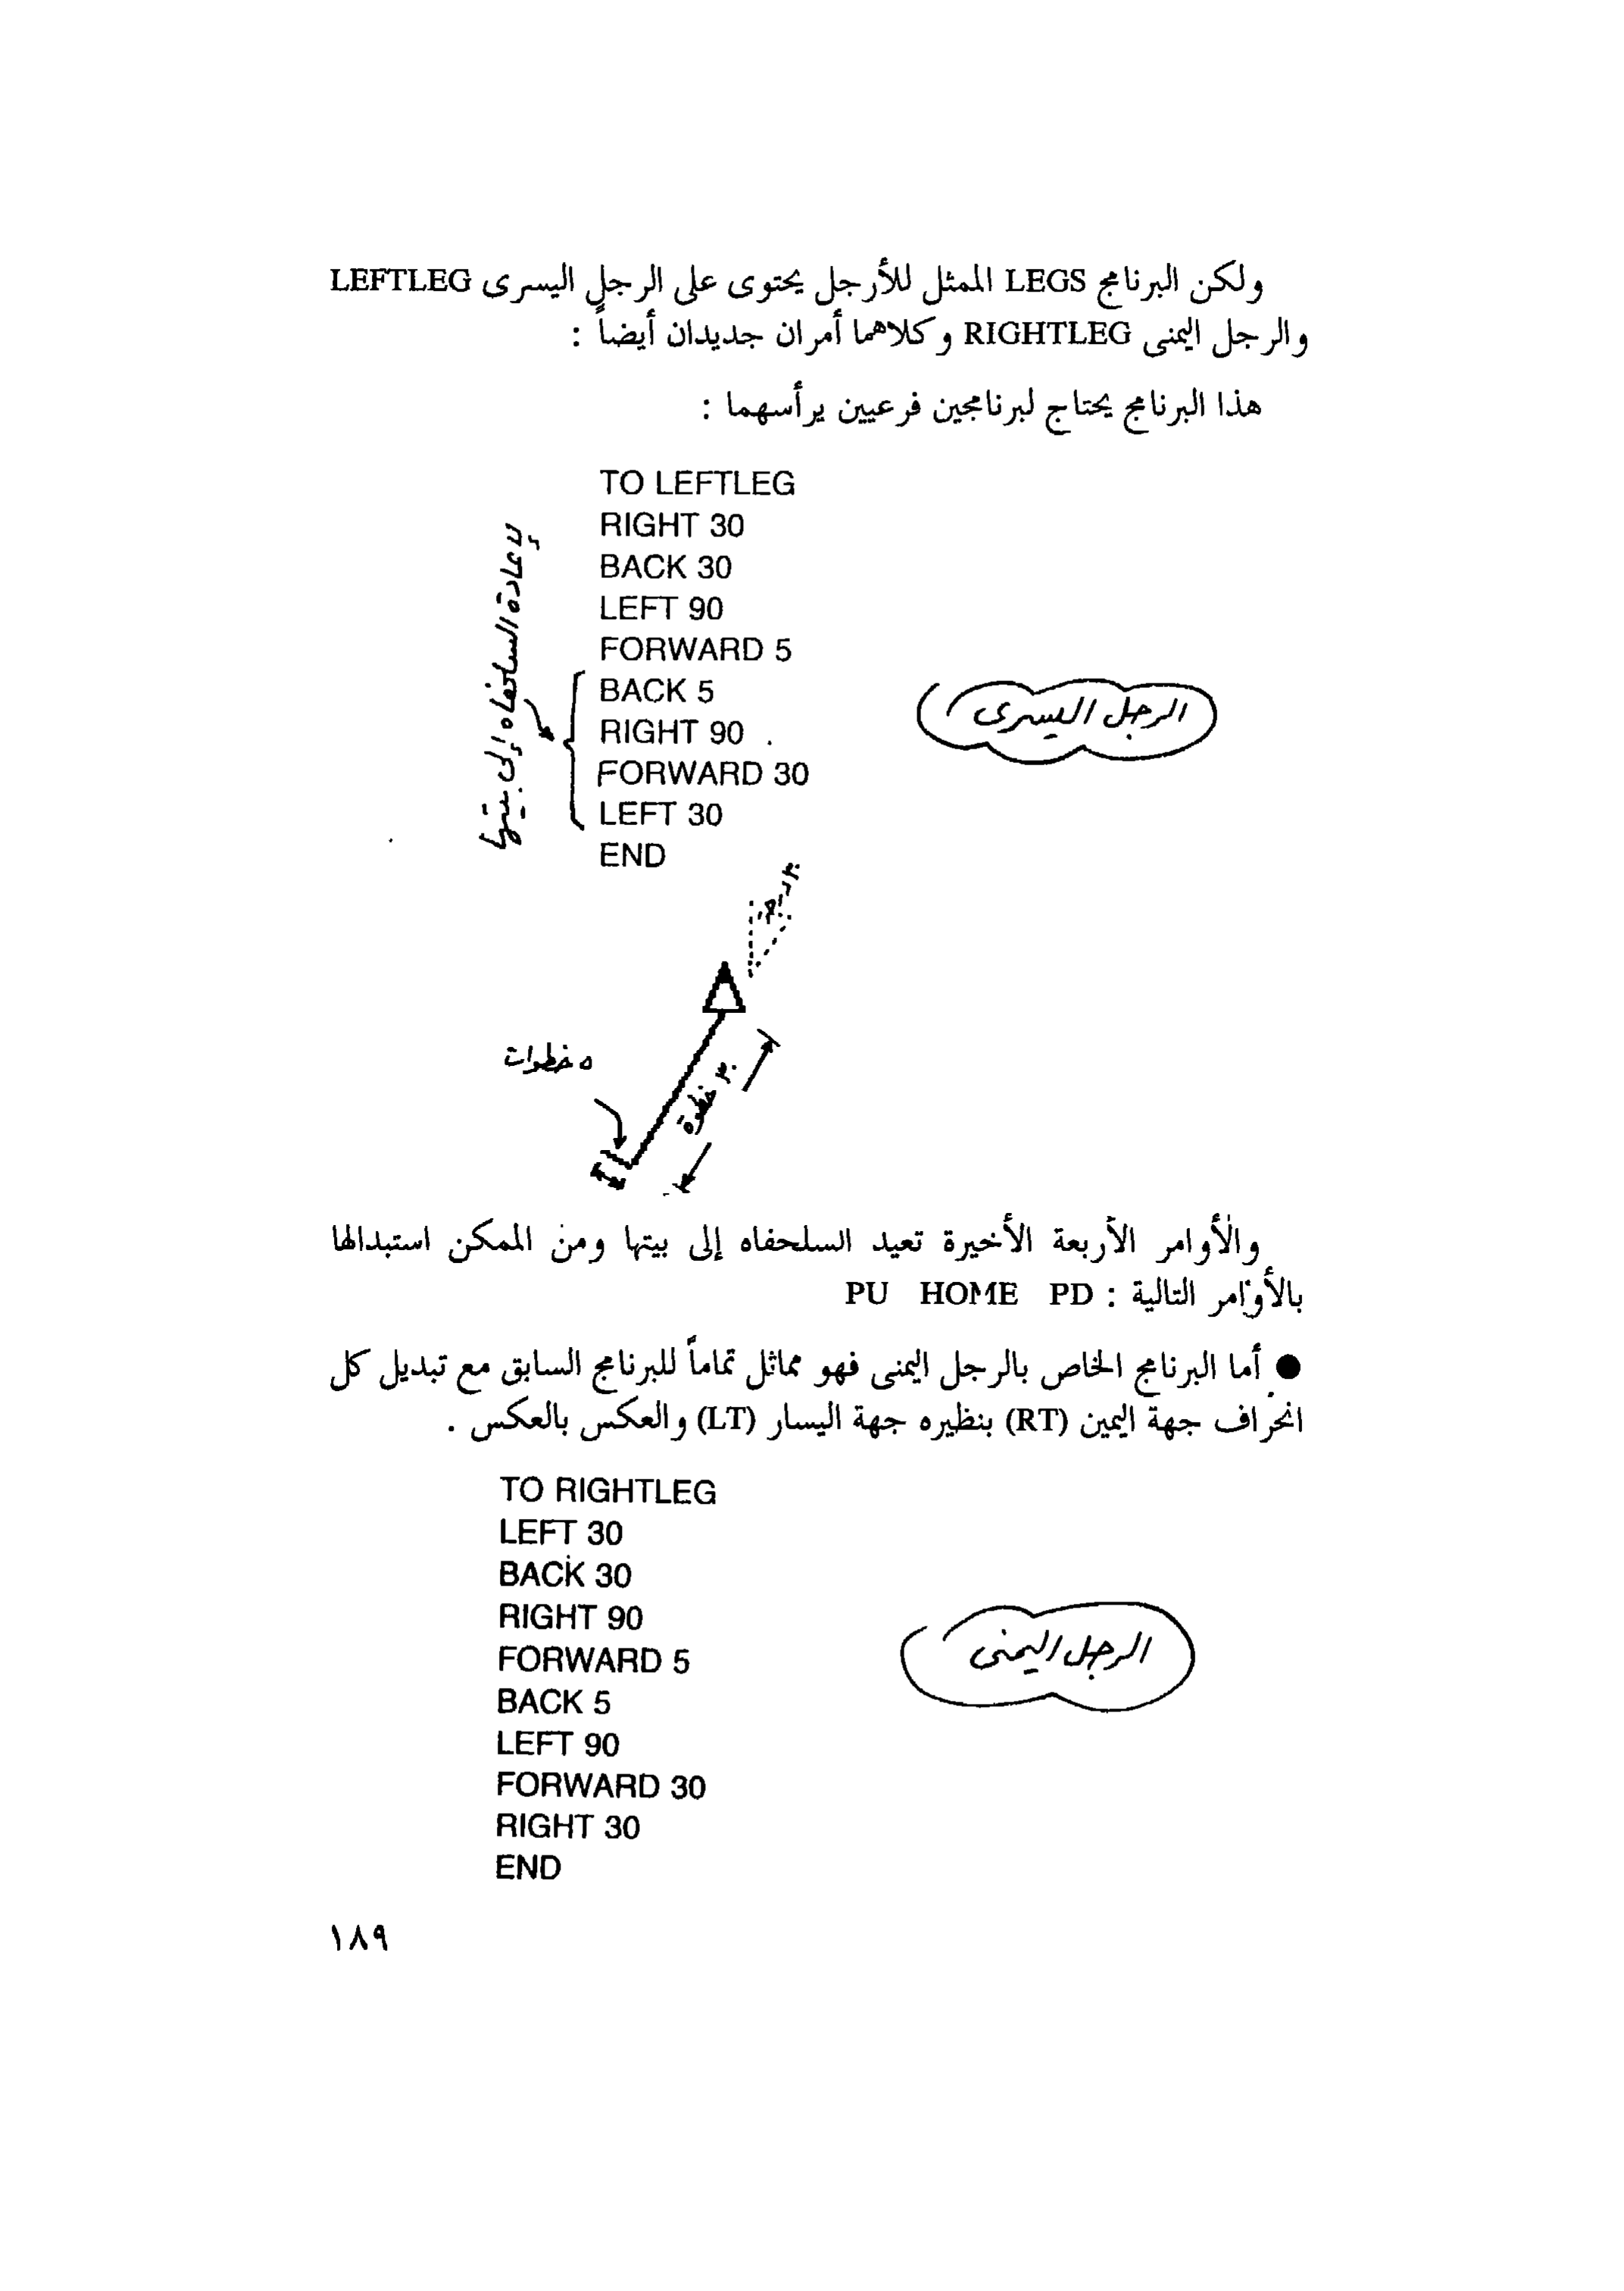 ولكن البرنامج LEGS الممثل للأرجل يحتوى على الرجل اليسرى LEFTLEG
والرجل اليمنى RIGHTLEG وكلاهما أمران جديدان أيضاً :
هذا البرنامج يحتاج لبرنامجين فرعيين يرأسهما :
TO LEFTLEG
RIGHT 30
BACK 30
LEFT 90
FORWARD 5
BACK 5
RIGHT 90
FORWARD 30
LEFT 30
END
لإعادة السلحفاه إلى بيتها
الرجل اليسرى
٣٠ درجة
٥ خطوات
٣٠ خطوة
والأوامر الأربعة الأخيرة تعيد السلحفاه إلى بيتها ومن الممكن استبدالها
بالأوامر التالية : PU HOME PD
● أما البرنامج الخاص بالرجل اليمنى فهو مماثل تماماً للبرنامج السابق مع تبديل كل
انحراف جهة اليمين (RT) بنظيره جهة اليسار (LT) والعكس بالعكس .
TO RIGHTLEG
LEFT 30
BACK 30
RIGHT 90
FORWARD 5
BACK 5
LEFT 90
FORWARD 30
RIGHT 30
END
الرجل اليمنى
١٨٩